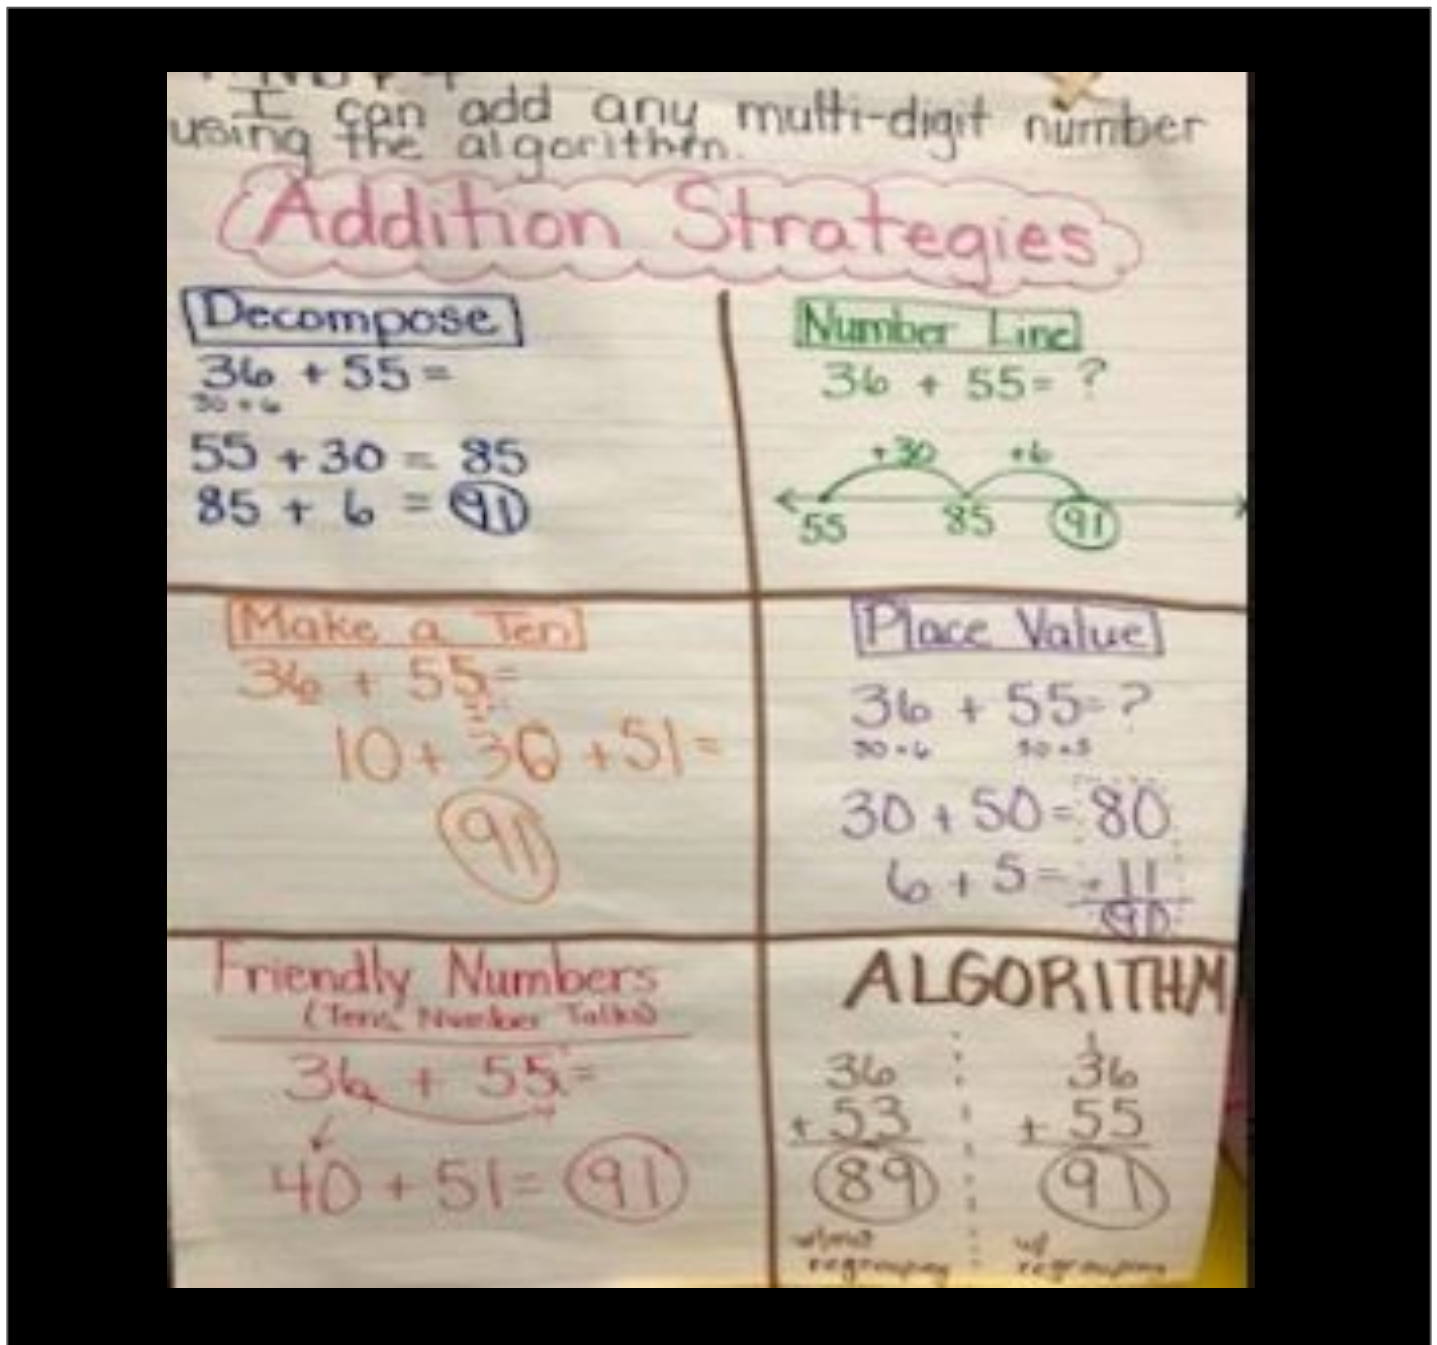 I can add any multi-digit number
using the algorithm.
Addition Strategies
Decompose
36 + 55 =
30 + 6
55 + 30 = 85
85 + 6 = 91
Number Line
36 + 55 = ?
+30 +6
55 85 91
Make a Ten
36 + 55 =
10 + 30 + 51 =
91
Place Value
36 + 55 = ?
30 + 6 50 + 5
30 + 50 = 80
6 + 5 = + 11
91
Friendly Numbers
(Tens, Number Talks)
36 + 55 =
40 + 51 = 91
ALGORITHM
36
+ 53
89
w/out
regrouping
1
36
+ 55
91
w/
regrouping